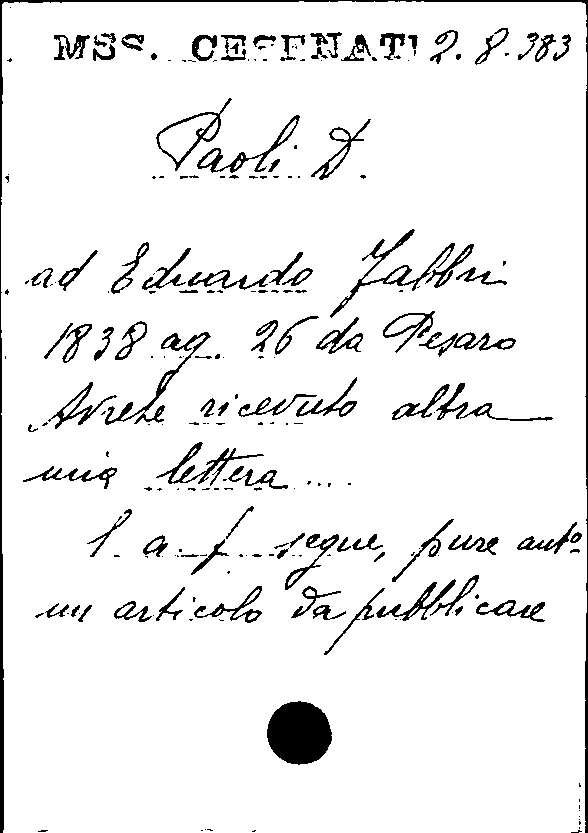 MSS. CESENATI 2.8.383
Paoli D.
ad Eduardo Fabbri
1838 ag. 26 da Pesaro
Avrete ricevuto altra
mia lettera ...
l. a. f. segue, pure autº
un articolo da pubblicare